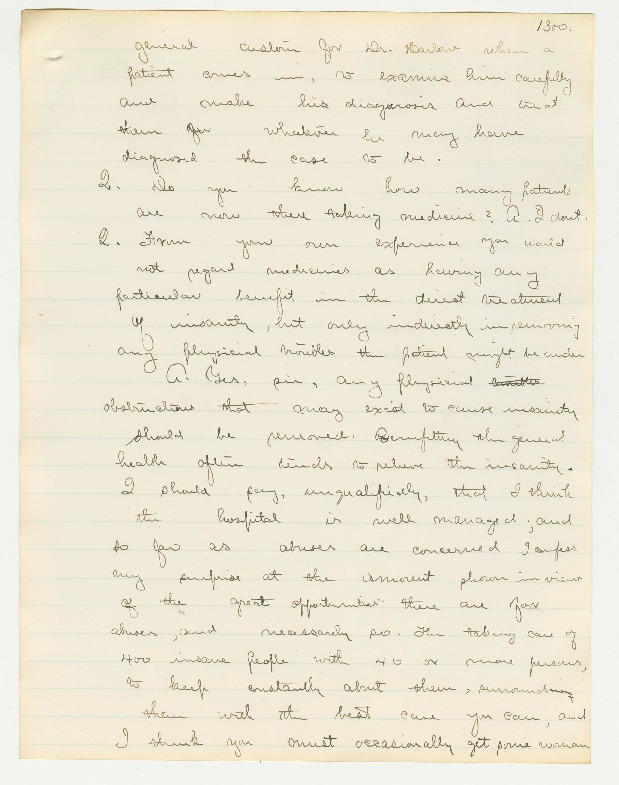 1300.
general custom for Dr. Harlow when a
patient comes in, to examine him carefully
and make his diagonosis and treat
them for whatever he may have
diagnosed the case to be.
Q. Do you know how many patients
are now there taking medicine? A. I dont.
Q. From your own experience you would
not regard medicines as having any
particular benefit in the direct treatment
of insanity, but only indirectly in removing
any physicial troubles the patient might be under
A. Yes, sir, any physicial
obstructions that may exist to cause insanity
should be removed. Benefitting the general
health often tends to relieve the insanity.
I should say, unqualifiedly, that I think
the hospital is well managed; and
so far as abuses are concerned I confess
my surprise at the amount shown in view
of the great opportunities there are for
abuses, and necessarily so. The taking care of
400 insane people with 40 or more persons,
to keep constantly about them, surrounding
them with the best care you can, and
I think you must occasionally get some woman